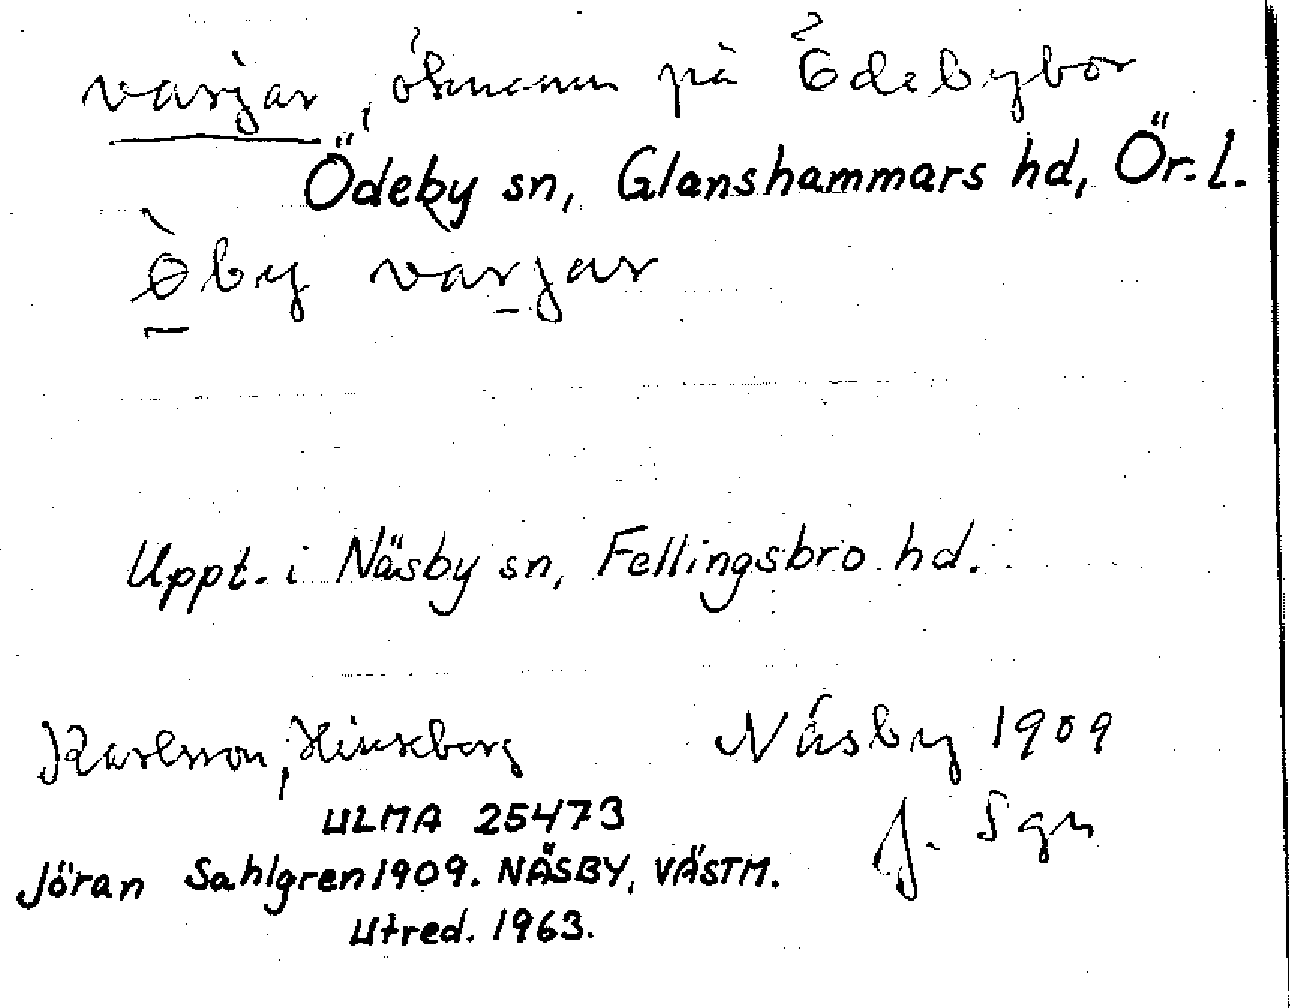 varjar, öknamn på Ödebybor
Ödeby sn, Glanshammars hd, Ör. l.
Öby varjar
Uppt. i Näsby sn, Fellingsbro hd.
Karlsson, Hinseberg Näsby 1909
ULMA 25473 J. Sgn
Jöran Sahlgren 1909. NÄSBY, VÄSTM.
Utred. 1963.